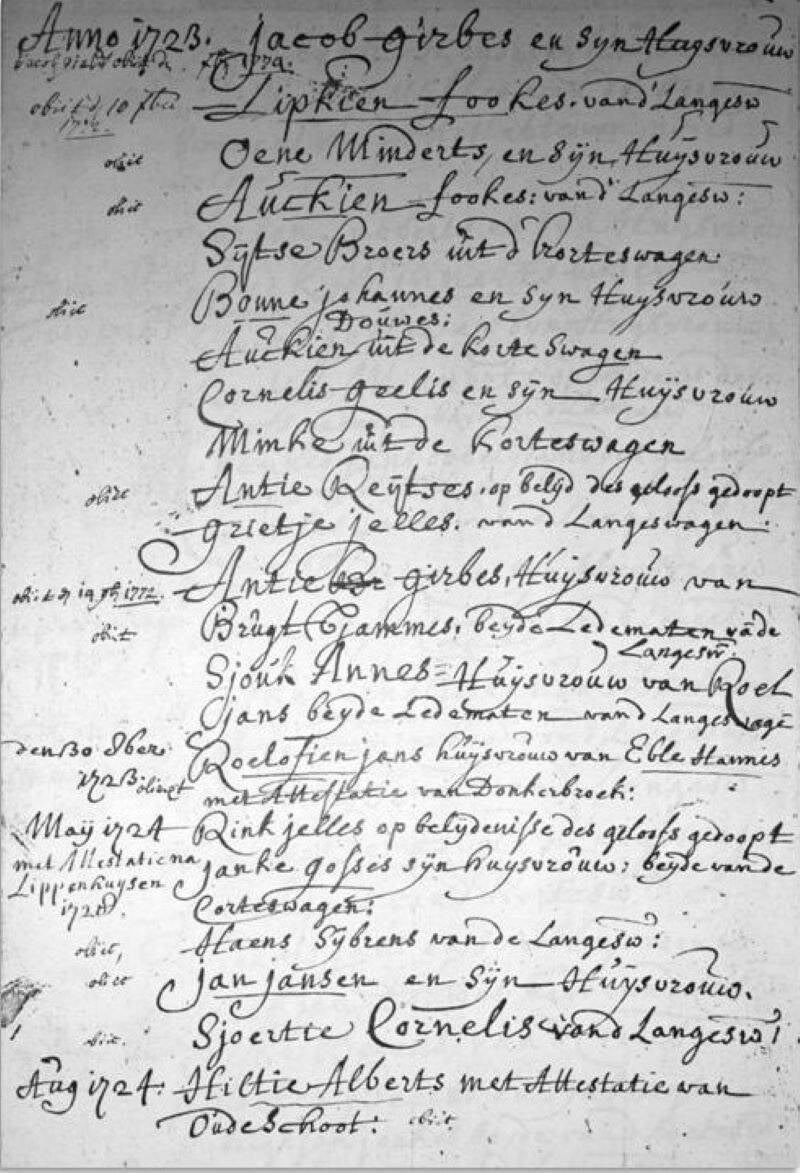 Anno 1723. jacob girbes en syn Huysvrouw
obiit d. 1774.
obiit d. 10
Lipkien fookes. vand Langesw
obiit Oene Minderts, en Sijn Huijsvrouw
obiit Auckien fookes: vand Langesw:
Sijtse Broers uit d' korteswagen.
obiit Boune johannes en syn Huysvrouw
Douwes:
Auckien uit de korte Swagen
Cornelis geelis en sijn Huijsvrouw
Minke uit de korteswagen
obiit Antie Reijtses. op belijd des geloofs gedoopt
grietje jelles. vand Langeswagen.
obiit d. 1772. Antie girbes, Huijsvrouw van
obiit Brugt Tjammes, beyde Ledematen vade
Langesw.
Sjouk Annes = Huijsvrouw van Roel
jans beyde Ledematen vand Langeswage
den 30 8ber Roelofien jans huijsvrouw van Eble Hannes
1723. met Attestatie van Donkerbroek:
Maij 1724 Rink jelles op belydenisse des geloofs gedoopt
met Attestatie na janke gosses sijn huysvrouw: beyde van de
Lippenhuysen
Corteswagen:
obiit, Haens Sijbrens van de Langesw:
obiit jan jansen en Sijn Huijsvrouw.
obiit. Sjoertie Cornelis vand Langesw
Aug 1724. Hiltie Alberts met Attestatie van
Oude Schoot: obiit